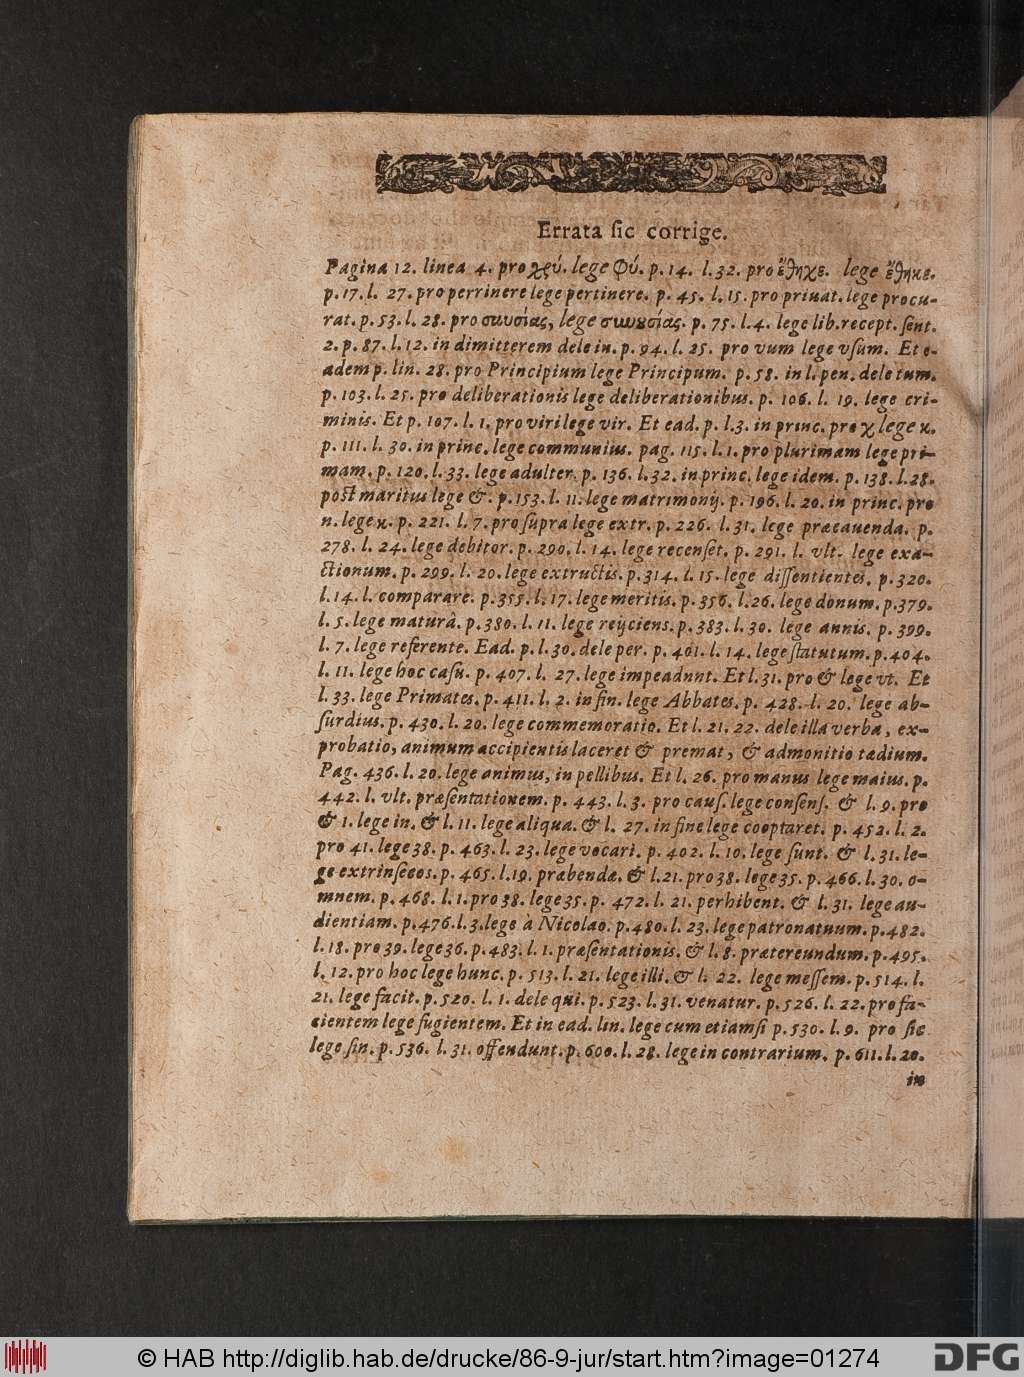 Errata ſic corrige.
Pagina 12. linea 4. pro χρύ. lege Φύ. p. 14. l. 32. pro ἔθηχε. lege ἔθηκε.
p. 17. l. 27. pro perrinere lege pertinere. p. 45. l. 15. pro privat. lege procu-
rat. p. 53. l. 28. pro lege p. 75. l. 4. lege lib. recept. ſent.
2. p. 87. l. 12. in dimitterem dele in. p. 94. l. 25. pro vum lege vſum. Et e-
adem p. lin. 28. pro Principium lege Principum. p. 58. in l. pen. dele tum.
p. 103. l. 25. pro deliberationis lege deliberationibus. p. 106. l. 19. lege cri-
minis. Et p. 107. l. 1. pro viri lege vir. Et ead. p. l. 3. in princ. pro χ lege κ.
p. 111. l. 30. in princ. lege communius. pag. 115. l. 1. pro plurimam lege pri-
mam. p. 120. l. 33. lege adulter. p. 136. l. 32. in princ. lege idem. p. 138. l. 28.
poſt maritus lege &. p. 153. l. 11. lege matrimonij. p. 196. l. 20. in princ. pro
n. lege κ. p. 221. l. 7. pro ſupra lege extr. p. 226. l. 31. lege præcauenda. p.
278. l. 24. lege debitor. p. 290. l. 14. lege recenſet. p. 291. l. vlt. lege exa-
ctionum. p. 299. l. 20. lege extructis. p. 314. l. 15. lege diſſentientes. p. 320.
l. 14. l. comparare. p. 355. l. 17. lege meritis. p. 356. l. 26. lege donum. p. 379.
l. 5. lege maturâ. p. 380. l. 11. lege reijciens. p. 383. l. 30. lege annis. p. 399.
l. 7. lege referente. Ead. p. l. 30. dele per. p. 401. l. 14. lege ſtatutum. p. 404.
l. 11. lege hoc caſu. p. 407. l. 27. lege impeadunt. Et l. 31. pro & lege vt. Et
l. 33. lege Primates. p. 411. l. 2. in fin. lege Abbates. p. 428. l. 20. lege ab-
ſurdius. p. 430. l. 20. lege commemoratio. Et l. 21. 22. dele illa verba, ex-
probatio, animum accipientis laceret & premat, & admonitio tædium.
Pag. 436. l. 20. lege animus, in pellibus. Et l. 26. pro manus lege maius. p.
442. l. vlt. præſentationem. p. 443. l. 3. pro cauſ. lege conſenſ. & l. 9. pro
& 1. lege in. & l. 11. lege aliqua. & l. 27. in fine lege cooptaret. p. 452. l. 2.
pro 41. lege 38. p. 463. l. 23. lege vocari. p. 402. l. 10. lege ſunt. & l. 31. le-
ge extrinſecos. p. 465. l. 19. præbendæ. & l. 21. pro 38. lege 35. p. 466. l. 30. o-
mnem. p. 468. l. 1. pro 38. lege 35. p. 472. l. 21. perhibent. & l. 31. lege au-
dientiam. p. 476. l. 3. lege à Nicolao. p. 480. l. 23. lege patronatuum. p. 482.
l. 18. pro 39. lege 36. p. 483. l. 1. præſentationis. & l. 8. prætereundum. p. 495.
l. 12. pro hoc lege hunc. p. 513. l. 21. lege illi. & l. 22. lege meſſem. p. 514. l.
21. lege facit. p. 520. l. 1. dele qui. p. 523. l. 31. venatur. p. 526. l. 22. pro fa-
cientem lege fugientem. Et in ead. lin. lege cum etiamſi p. 530. l. 9. pro ſic
lege ſin. p. 536. l. 31. offendunt. p. 600. l. 28. lege in contrarium. p. 611. l. 20.
in
© HAB http://diglib.hab.de/drucke/86-9-jur/start.htm?image=01274
DFG